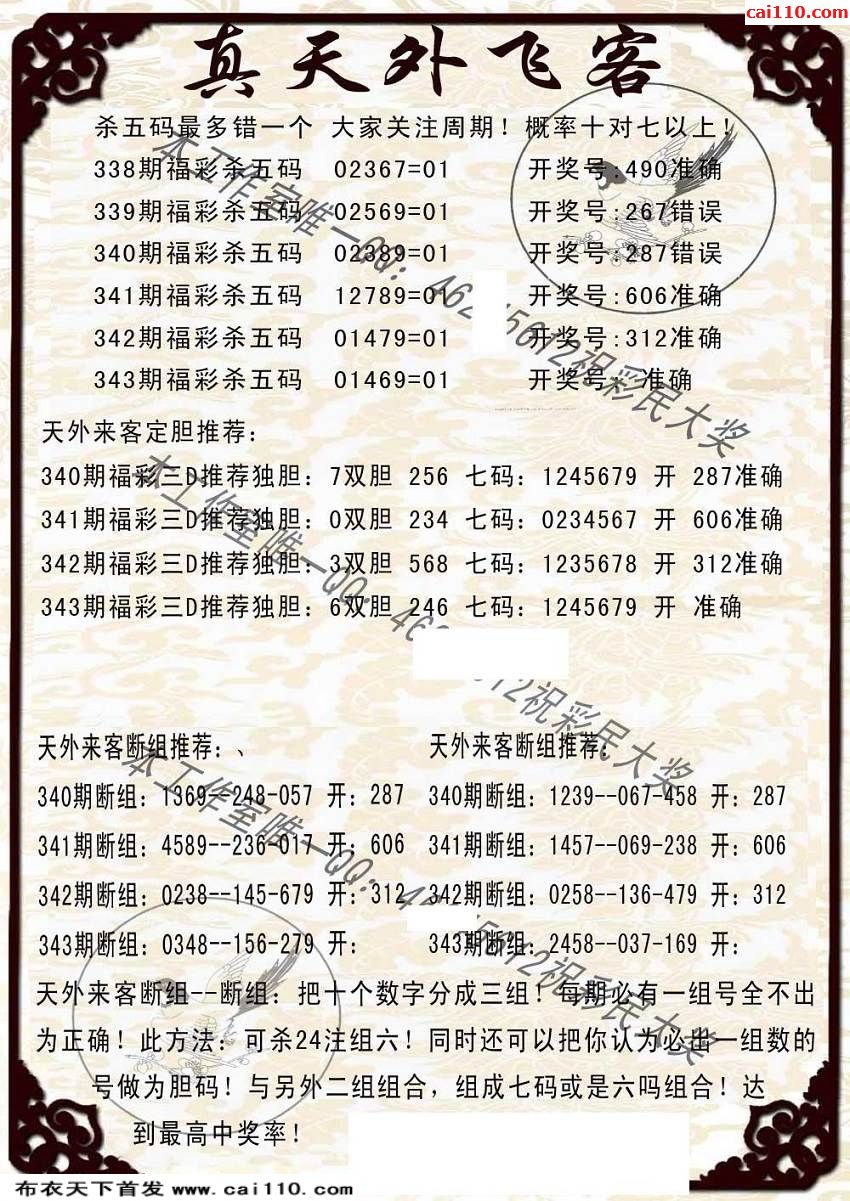 cai110.com
真天外飞客
杀五码最多错一个 大家关注周期！概率十对七以上！
338期福彩杀五码 02367=01 开奖号:490准确
339期福彩杀五码 02569=01 开奖号:267错误
340期福彩杀五码 02389=01 开奖号:287错误
341期福彩杀五码 12789=01 开奖号:606准确
342期福彩杀五码 01479=01 开奖号:312准确
343期福彩杀五码 01469=01 开奖号: 准确
天外来客定胆推荐：
340期福彩三D推荐独胆：7双胆 256 七码：1245679 开 287准确
341期福彩三D推荐独胆：0双胆 234 七码：0234567 开 606准确
342期福彩三D推荐独胆：3双胆 568 七码：1235678 开 312准确
343期福彩三D推荐独胆：6双胆 246 七码：1245679 开 准确
天外来客断组推荐：、 天外来客断组推荐：
340期断组：1369--248-057 开：287 340期断组：1239--067-458 开：287
341期断组：4589--236-017 开：606 341期断组：1457--069-238 开：606
342期断组：0238--145-679 开：312 342期断组：0258--136-479 开：312
343期断组：0348--156-279 开： 343期断组：2458--037-169 开：
天外来客断组--断组：把十个数字分成三组！每期必有一组号全不出
为正确！此方法：可杀24注组六！同时还可以把你认为必出一组数的
号做为胆码！与另外二组组合，组成七码或是六吗组合！达
到最高中奖率！
布衣天下首发 www.cai110.com